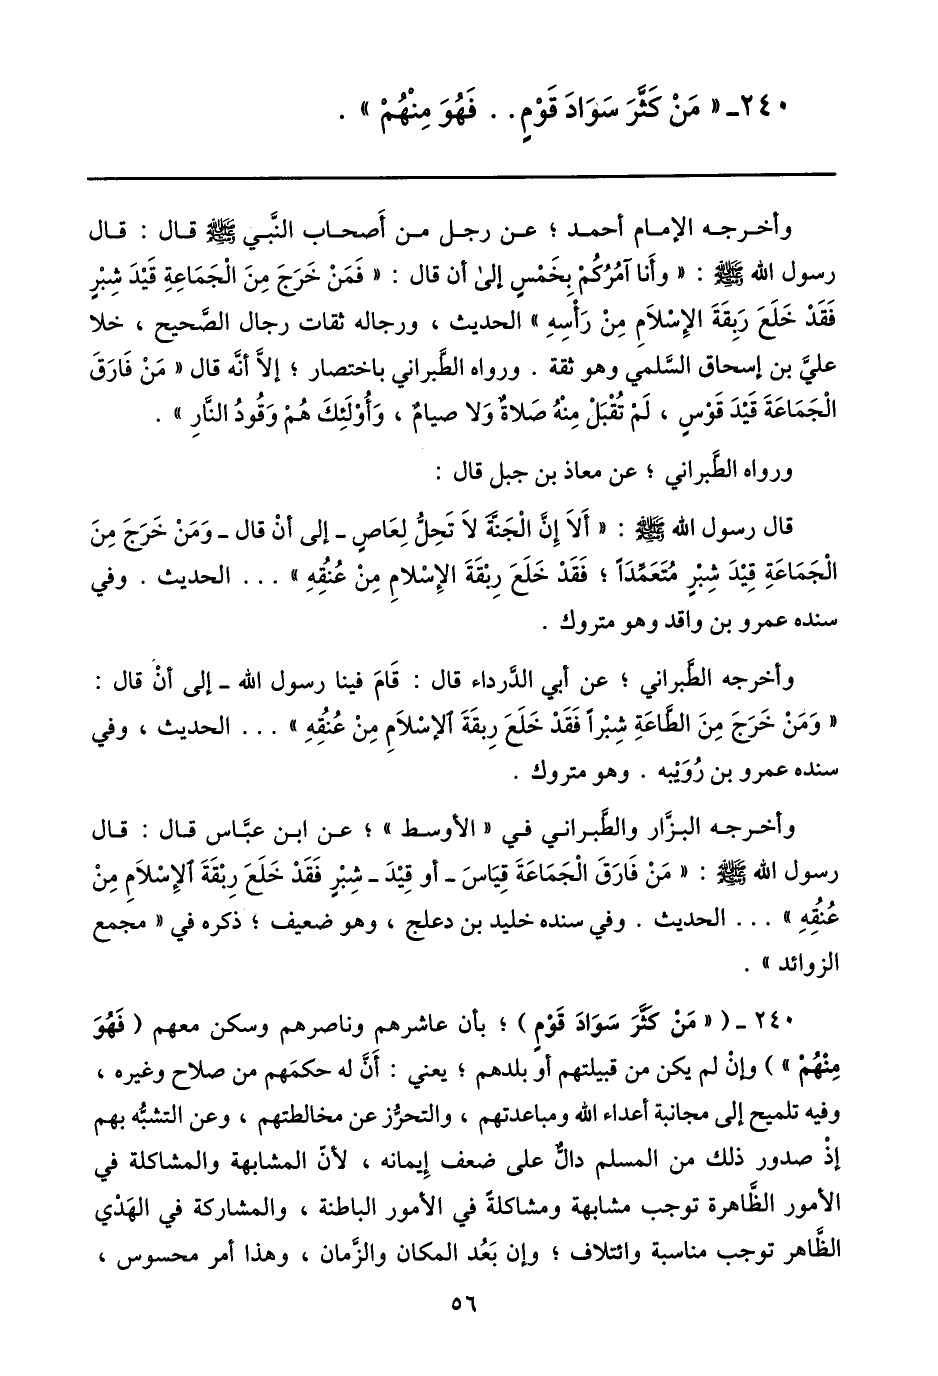 ٢٤٠ـ « مَنْ كَثَّرَ سَوَادَ قَوْمٍ . . فَهُوَ مِنْهُمْ » .
وأخرجه الإمام أحمد ؛ عن رجل من أَصحاب النَّبي ﷺ قال : قال
رسول الله ﷺ : « وأَنا آمُرُكُمْ بِخَمْسٍ إلىٰ أن قال : « فَمَنْ خَرَجَ مِنَ الْجَمَاعَةِ قَيْدَ شِبْرٍ
فَقَدْ خَلَعَ رَبِقَةَ الإِسْلاَمِ مِنْ رَأْسِهِ » الحديث ، ورجاله ثقات رجال الصَّحيح ، خلا
عليَّ بن إسحاق السَّلمي وهو ثقة . ورواه الطَّبراني باختصار ؛ إلاَّ أنَّه قال « مَنْ فَارَقَ
الْجَمَاعَةَ قَيْدَ قَوْسٍ ، لَمْ تُقْبَلْ مِنْهُ صَلاةٌ وَلا صيامٌ ، وَأُوْلَئِكَ هُمْ وَقُودُ النَّارِ » .
ورواه الطَّبراني ؛ عن معاذ بن جبل قال :
قال رسول الله ﷺ : « أَلاَ إِنَّ الْجَنَّةَ لاَ تَحِلُّ لِعَاصٍ ـ إلى أنْ قال ـ وَمَنْ خَرَجَ مِنَ
الْجَمَاعَةِ قِيْدَ شِبْرٍ مُتَعَمِّدَاً ؛ فَقَدْ خَلَعَ رِبْقَةَ الإِسْلامِ مِنْ عُنُقِهِ » . . . الحديث . وفي
سنده عمرو بن واقد وهو متروك .
وأخرجه الطَّبراني ؛ عن أبي الدَّرداء قال : قَامَ فينا رسول الله ـ إلى أنْ قال :
« وَمَنْ خَرَجَ مِنَ الطَّاعَةِ شِبْراً فَقَدْ خَلَعَ رِبقَةَ ٱلإسْلاَمِ مِنْ عُنُقِهِ » . . . الحديث ، وفي
سنده عمرو بن رُوَيْبه . وهو متروك .
وأخرجه البزَّار والطَّبراني في « الأوسط » ؛ عن ابن عبَّاس قال : قال
رسول الله ﷺ : « مَنْ فَارَقَ الْجَمَاعَةَ قِيَاسَ ـ أو قِيْدَ ـ شِبْرٍ فَقَدْ خَلَعَ رِبْقَةَ ٱلإِسْلاَمِ مِنْ
عُنُقِهِ » . . . الحديث . وفي سنده خليد بن دعلج ، وهو ضعيف ؛ ذكره في « مجمع
الزوائد » .
٢٤٠ ـ ( « مَنْ كَثَّرَ سَوَادَ قَوْمٍ ) ؛ بأن عاشرهم وناصرهم وسكن معهم ( فَهُوَ
مِنْهُمْ » ) وإنْ لم يكن من قبيلتهم أو بلدهم ؛ يعني : أَنَّ له حكمَهم من صلاح وغيره ،
وفيه تلميح إلى مجانبة أعداء الله ومباعدتهم ، والتحرُّز عن مخالطتهم ، وعن التشبُّه بهم
إذْ صدور ذلك من المسلم دالٌّ على ضعف إيمانه ، لأنّ المشابهة والمشاكلة في
الأمور الظَّاهرة توجب مشابهة ومشاكلةً في الأمور الباطنة ، والمشاركة في الهَدْي
الظَّاهر توجب مناسبة وائتلاف ؛ وإن بَعُد المكان والزَّمان ، وهذا أمر محسوس ،
٥٦